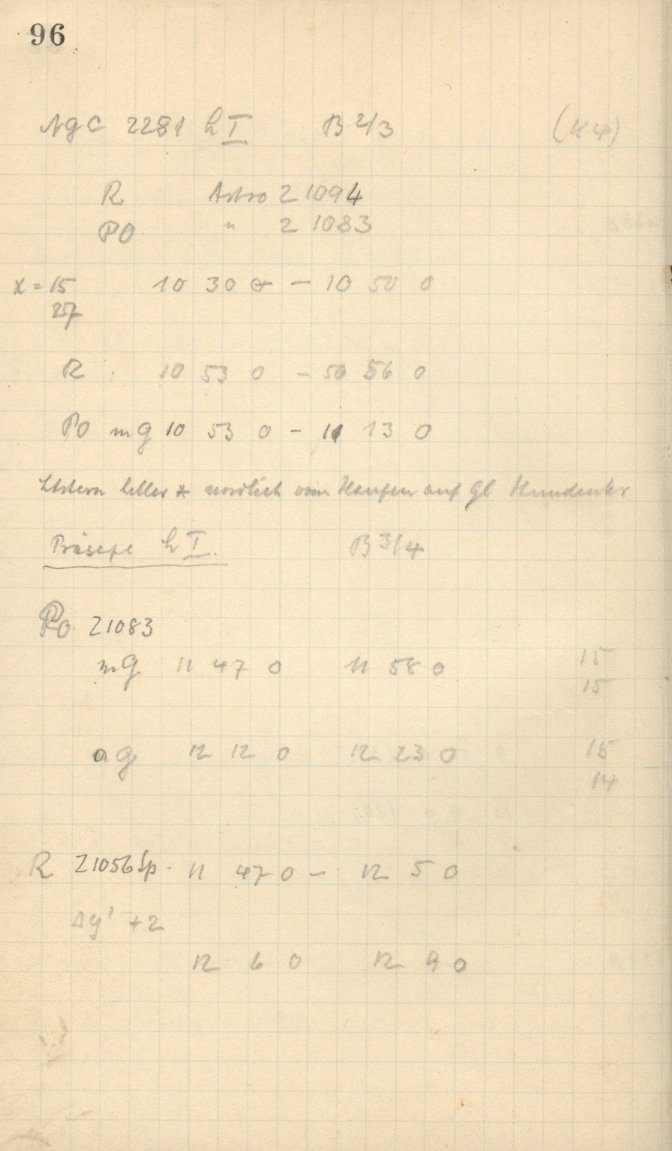 96
NgC 2281 h I B 2/3 (K4)
R Astro 21094
PO " 21083
x = 15 10 30 0 - 10 50 0
27
R 10 53 0 - 56 0
PO mg 10 53 0 - 11 13 0
heller * nordlich vom Haufen auf gl
Präsepe h I. B 3/4
Po 21083
mg 11 47 0 11 58 0 15
15
og 12 12 0 12 23 0 15
14
R 21056 Sp. 11 47 0 - 12 5 0
Δy' +2
12 6 0 12 9 0